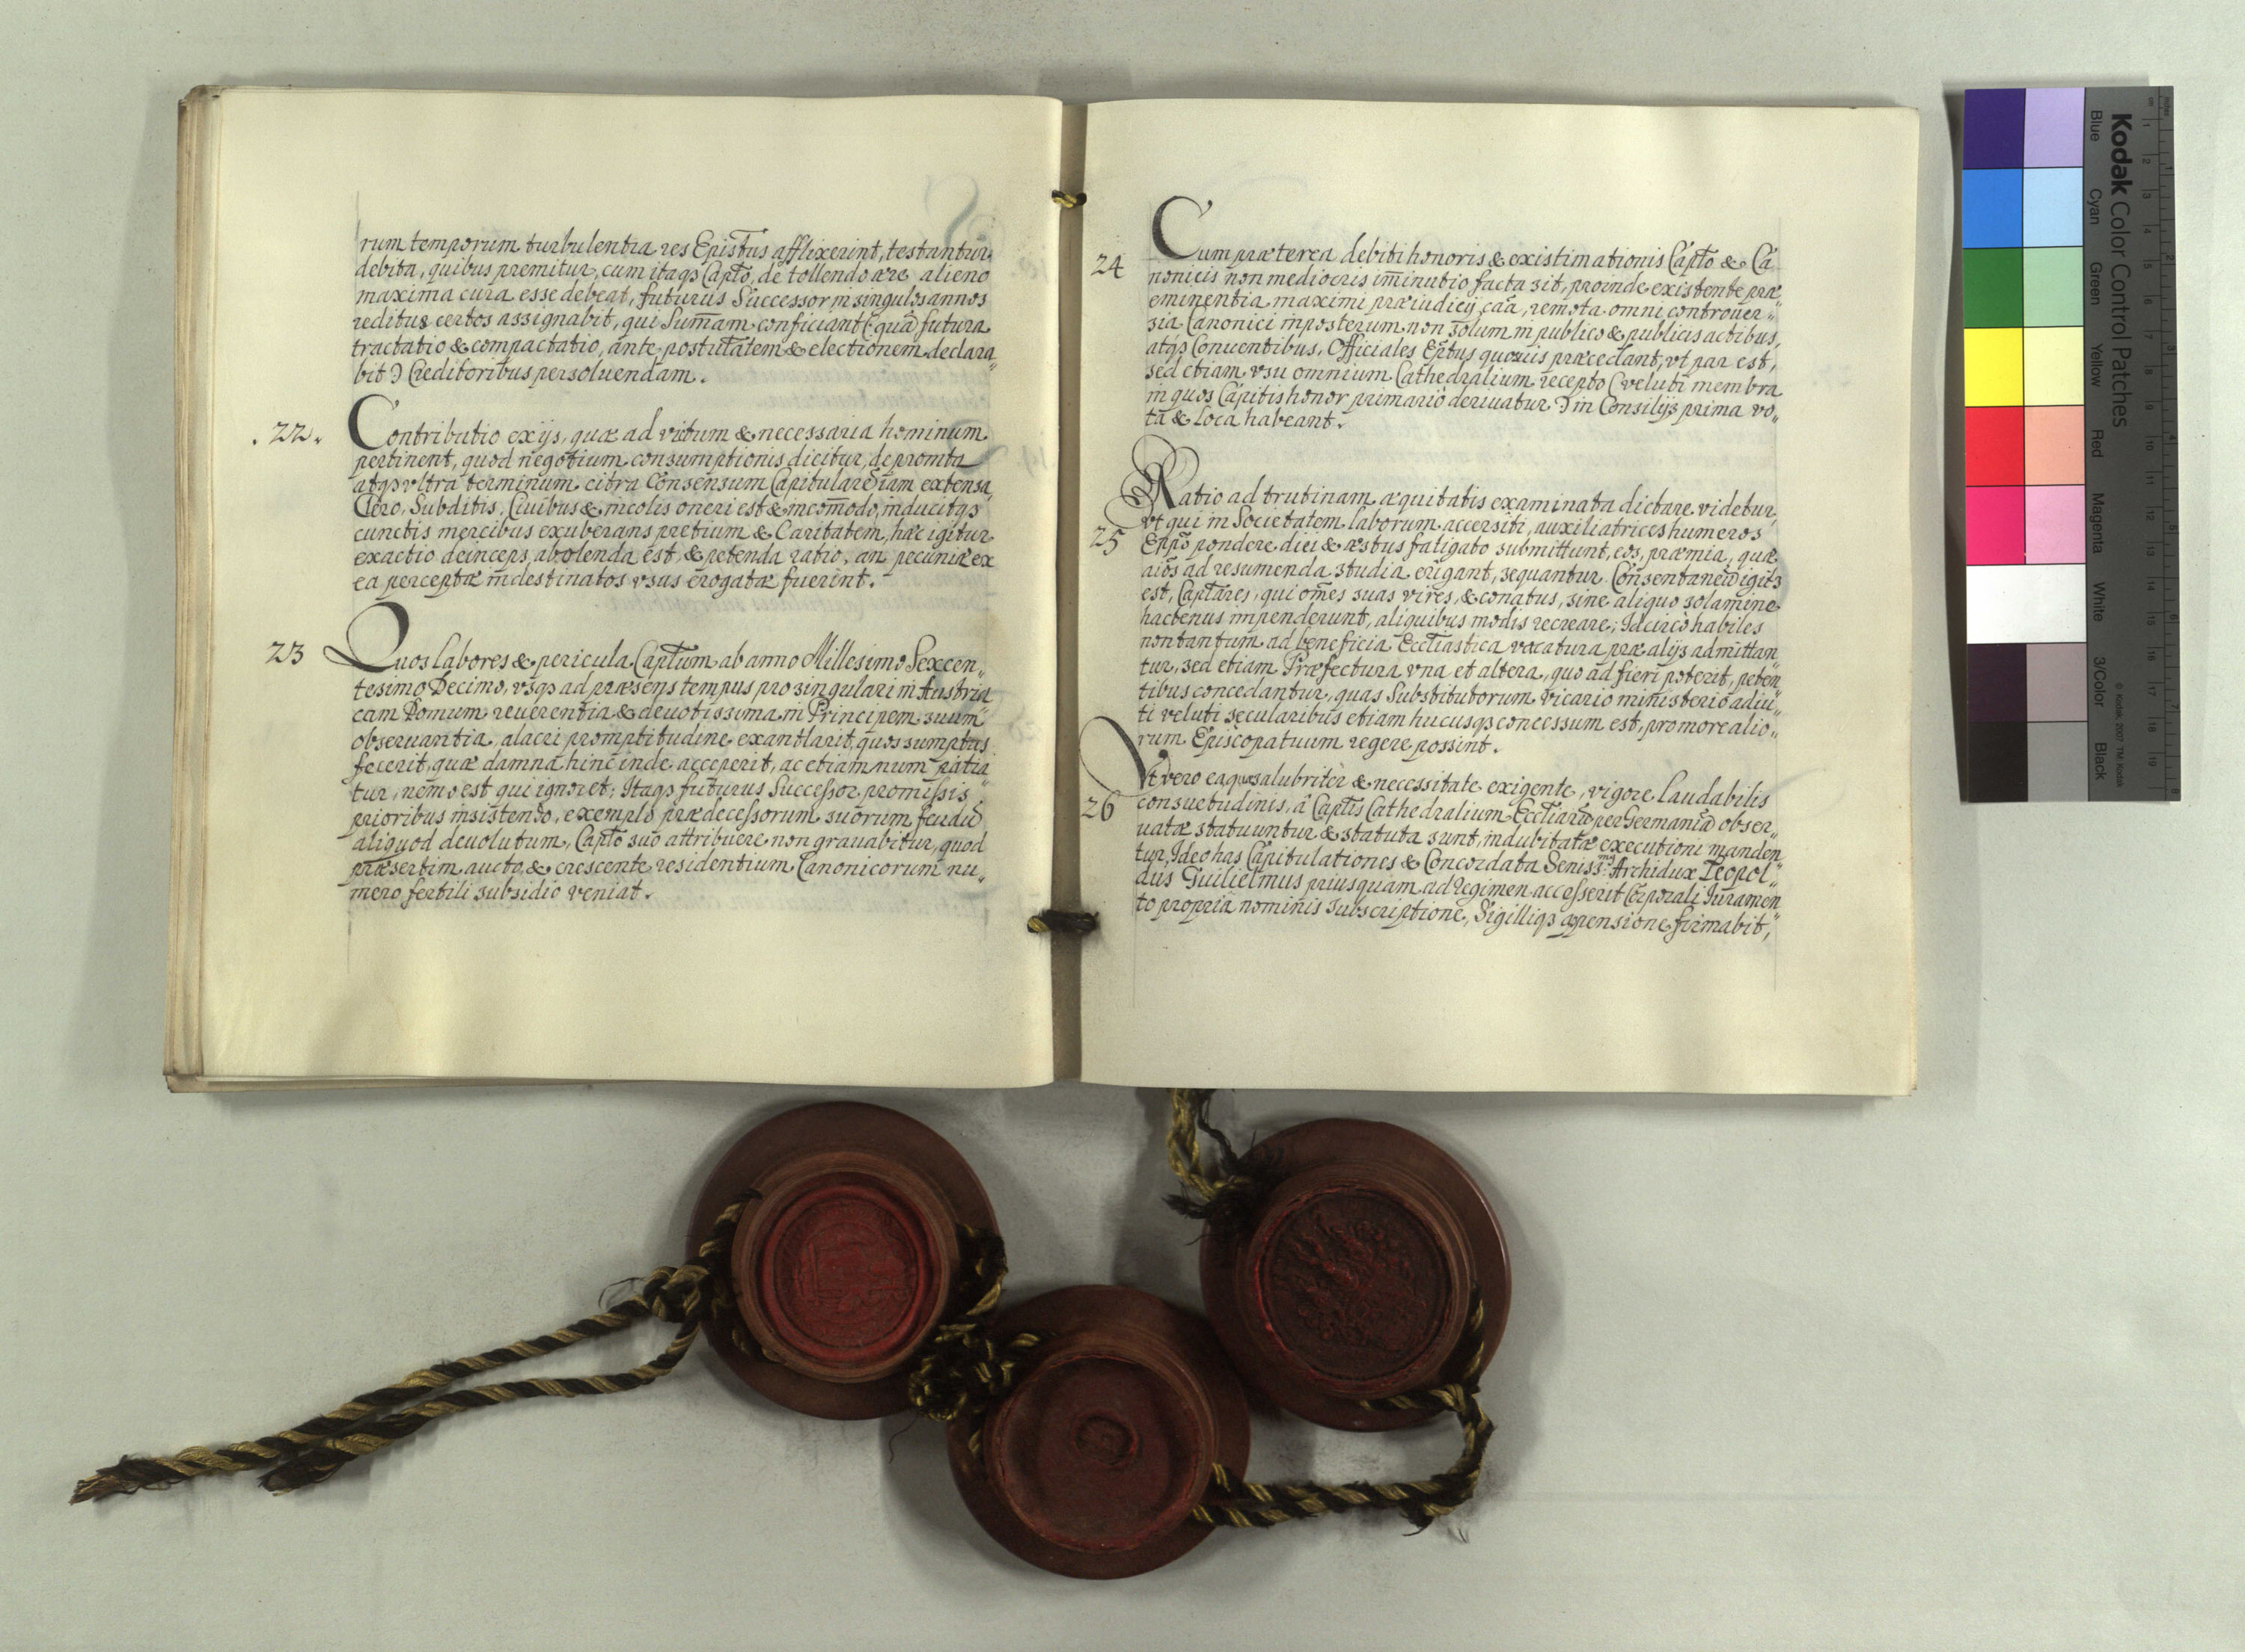 rum temporum turbulentia res Epistus afflixerint, testantur
debita, quibus premitur, cum itaqs Capto, de tollendo aere alieno
maxima cura esse debeat, futurus Successor in singulos annos
reditus certos assignabit, qui Sumam conficiant (qua futura
tractatio & compactatio, ante postulatem & electionem declara„
bit) Creditoribus persoluendam.
.22. Contributio ex ijs, quae ad victum & necessaria hominum
pertinent, quod negotium consumptionis dicitur, depromta
atqs vltra terminum citra Consensum Capitulare iam extensa,
Clero, Subditis, Ciuibus & incolis oneri est & incomodo, inducitqs
cunctis mercibus exuberans pretium & Caritatem, haec igitur
exactio deinceps, abolenda est, & petenda ratio, an pecuniae ex
ea perceptae in destinatos vsus erogatae fuerint.
23 Quos labores & pericula Captum ab anno Millesimo Sexcen„
tesimo Decimo, vsqs ad praesens tempus pro singulari in Austria
cam Domum reuerentia & deuotissima in Principem suum
obseruantia, alacri promptitudine exantlarit, quos sumptus
fecerit, quae damna hinc inde acceperit, ac etiamnum patia
tur, nemo est qui ignoret; Itaqs futurus Successor promissis
prioribus insistendo, exemplo praedecessorum suorum feudu
aliquod deuolutum, Capto suo attribuere non grauabitur, quod
praesertim aucto, & crescente residentium Canonicorum nu„
mero fertili subsidio veniat.
24 Cum praeterea debiti honoris & existimationis Capto & Ca
nonicis non mediocris iminutio facta sit, proinde existente prae
eminentia maximi praeiudicij caa, remota omni controuer„
sia Canonici inposterum non solum in publico & publicis actibus,
atqs Conuentibus, Officiales Eptus quosuis praecedant, vt par est,
sed etiam vsu omnium Cathedralium recepto (veluti membra
in quos Capitis honor primario deriuatur) in Consilijs prima vo„
ta & Loca habeant.
25 Ratio ad trutinam aequitatis examinata dictare videtur,
vt qui in Societatem laborum accersiti, auxiliatrices humeros
Eppo pondere diei & aestus fatigato submittunt, eos, praemia, quae
aios ad resumenda studia erigant, sequantur. Consentaneu igitr
est, Captares, qui omes suas vires, & conatus, sine aliquo solamine
hactenus impenderunt, aliquibus modis recreare; Idcirco habiles
non tantum ad beneficia Eccliastica vacatura prae alijs admittan
tur, sed etiam Praefectura vna et altera, quo ad fieri poterit, peten„
tibus concedantur, quas Substitutorum vicario ministerio adiu„
ti veluti secularibus etiam hucusqs concessum est, pro more alio„
rum Episcopatuum regere possint.
26 Vt vero ea quae salubriter & necessitate exigente, vigore Laudabilis
consuetudinis, à Captis Cathedralium Eccliaru per Germania obser„
uatae statuuntur & statuta sunt, indubitatae executioni manden
tur, Ideo has Capitulationes & Concordata Seniss.ms Archidux Leopol„
dus Guilielmus priusquam ad regimen accesserit Corporali Iuramen
to propria nominis subscriptione, Sigilliqs apensione firmabit,
Kodak Color Control Patches
Blue Cyan Green Yellow Red Magenta White 3/Color Black
© Kodak, 2007 TM: Kodak
cm 1 2 3 4 5 6 7 8 9 10 11 12 13 14 15 16 17 18 19